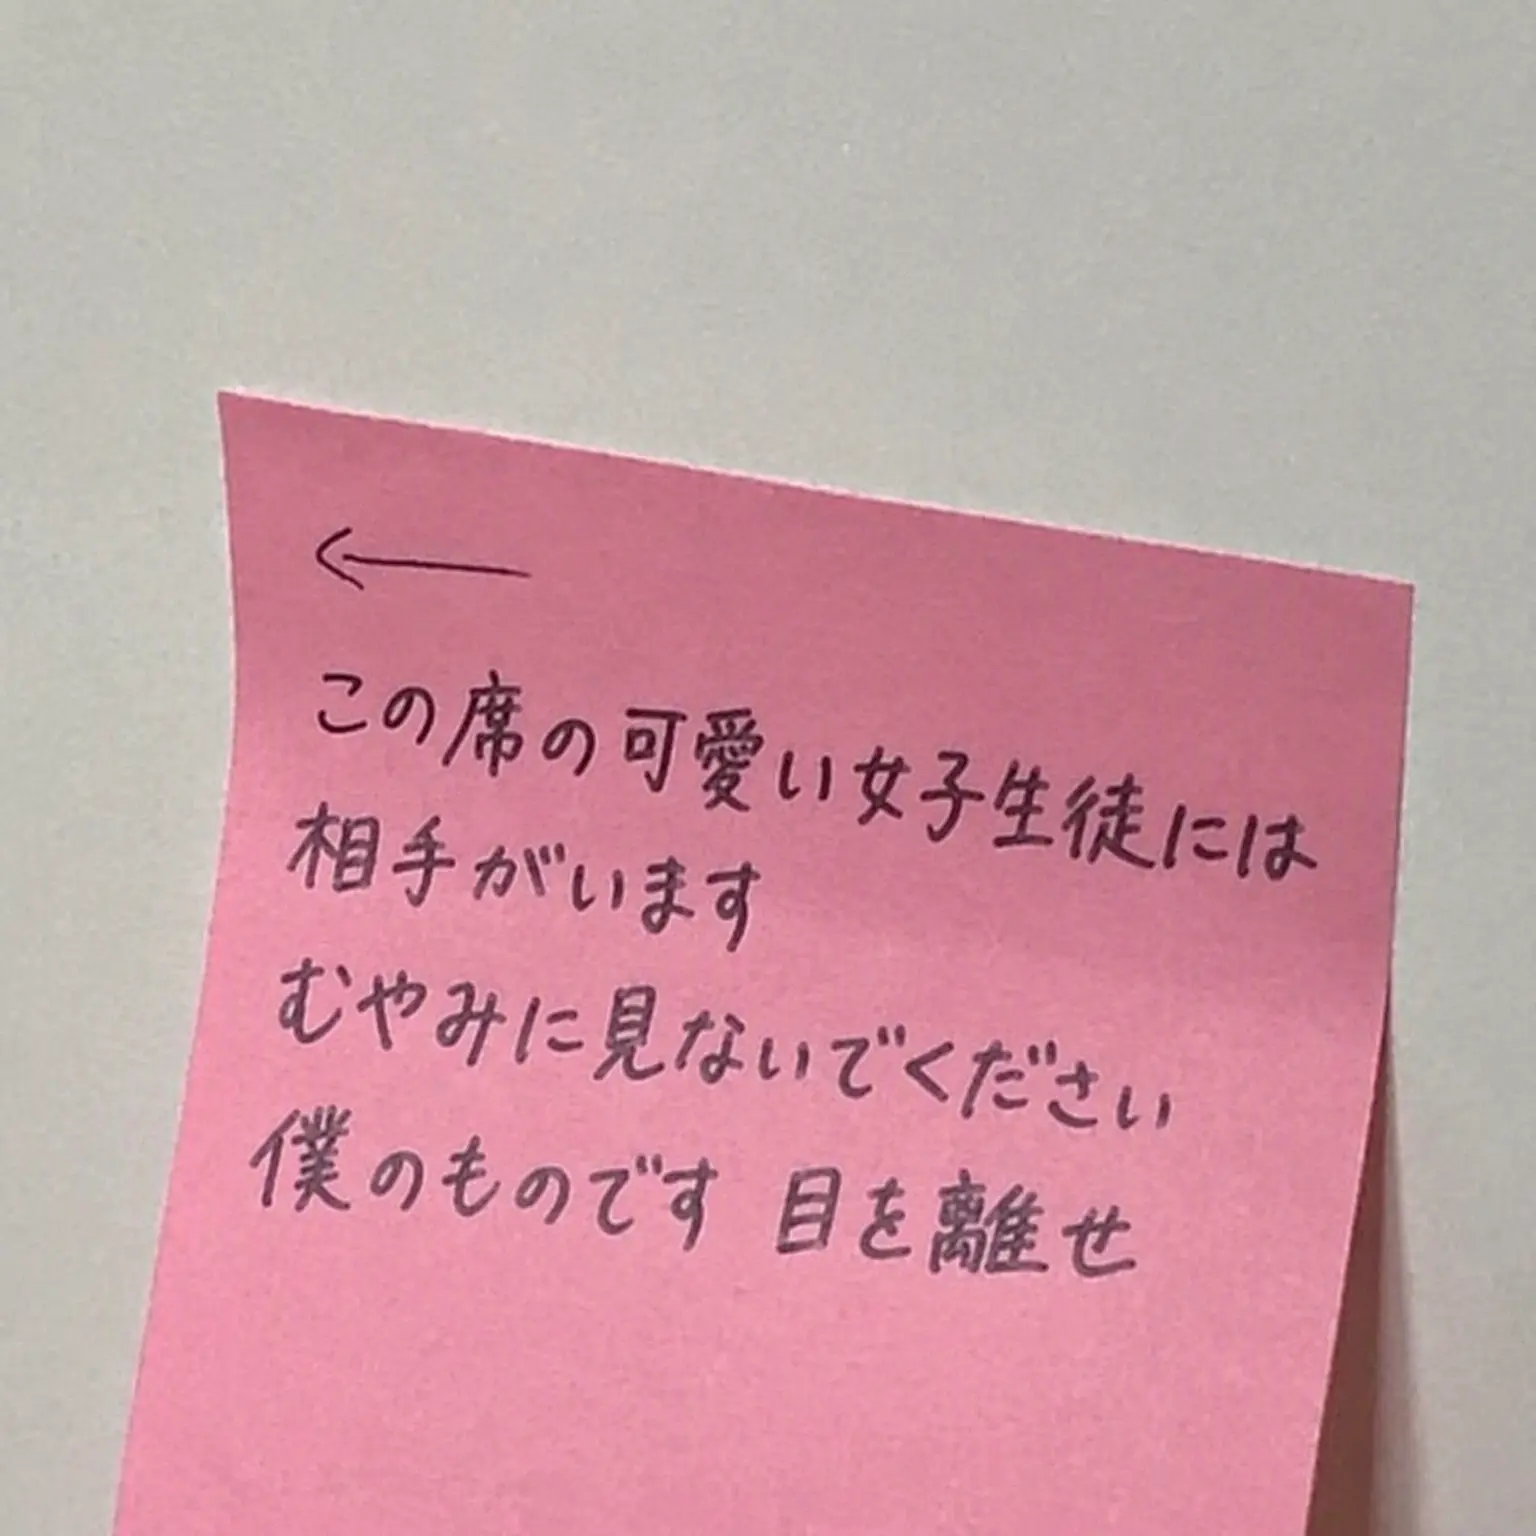 ←
この席の可愛い女子生徒には
相手がいます
むやみに見ないでください
僕のものです 目を離せ